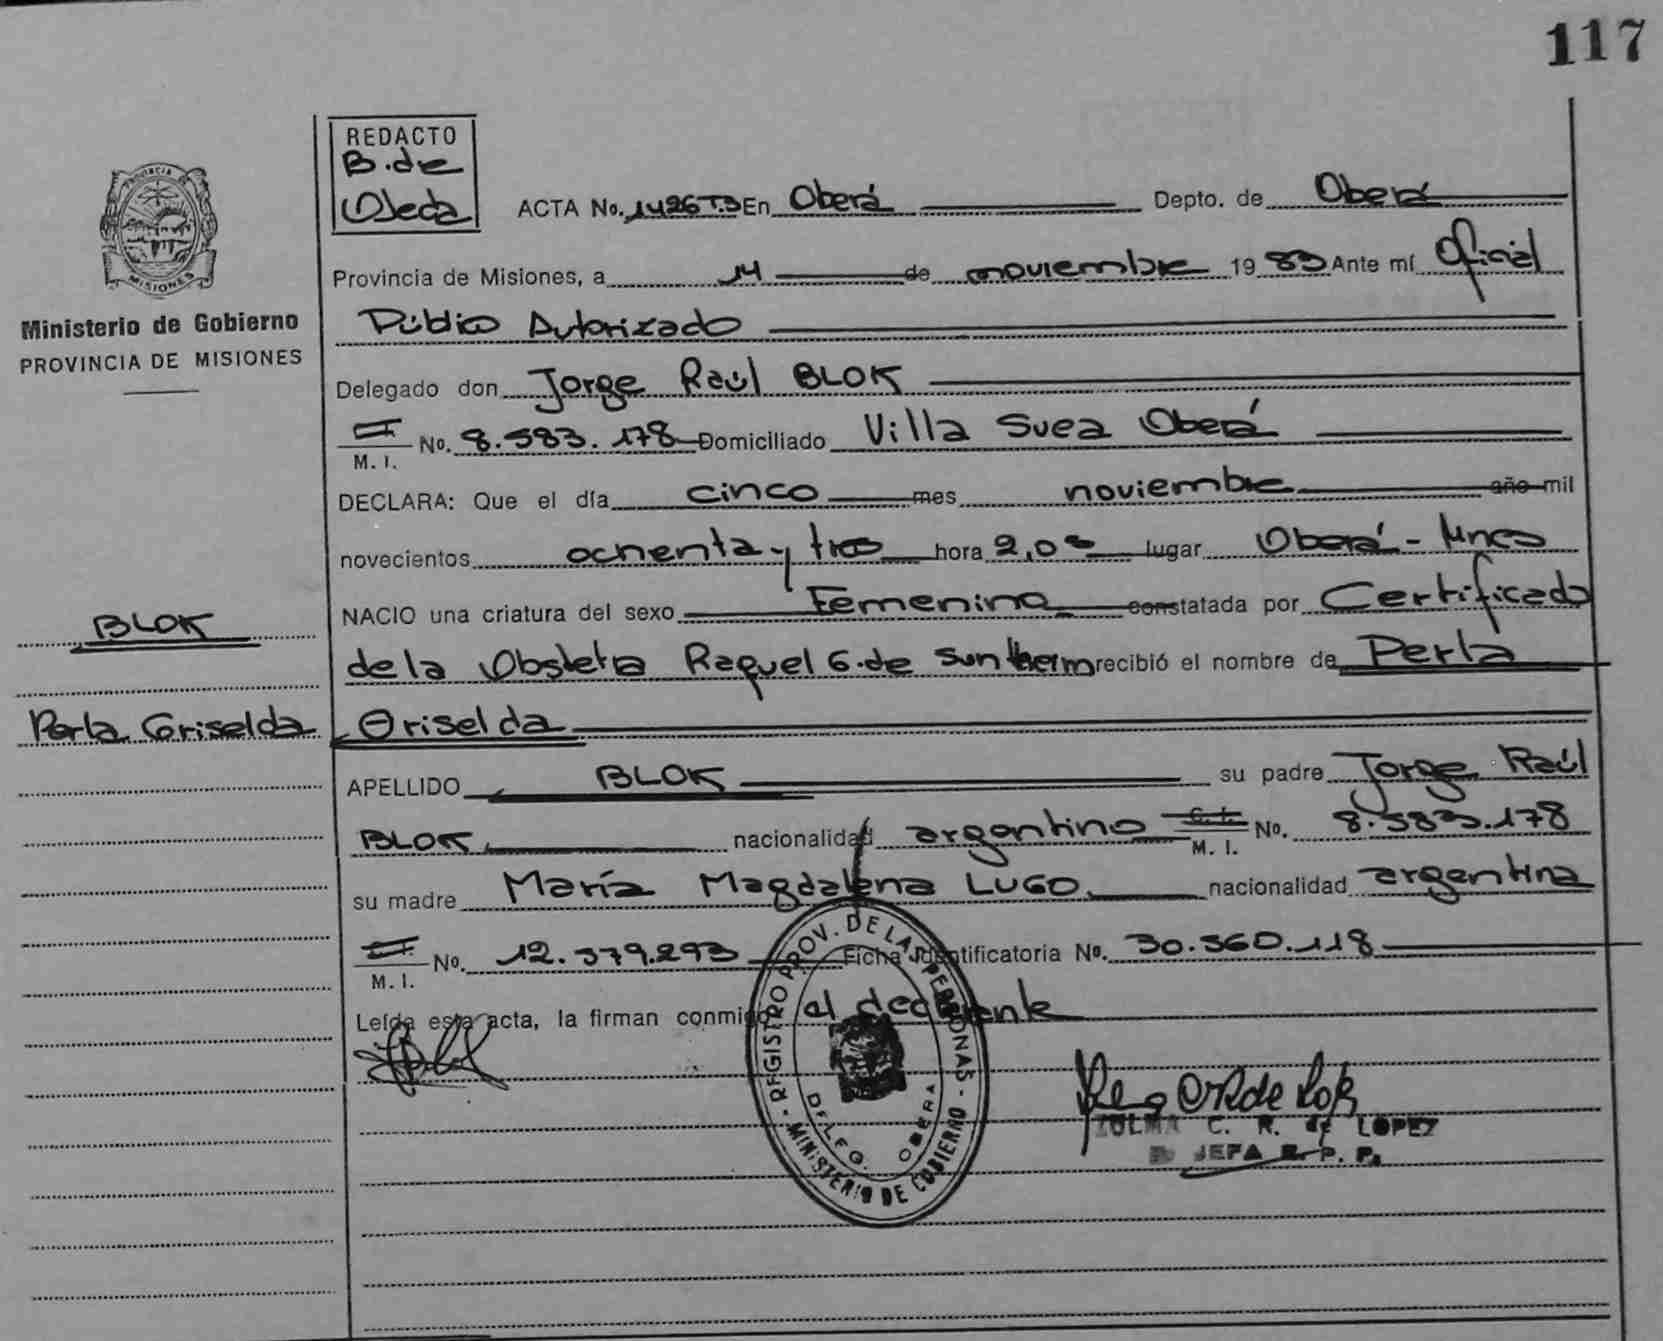 117
REDACTO
B. de
Ojeda
ACTA No. 1426T.3 En Oberá Depto. de Oberá
Provincia de Misiones, a 14 de noviembre 1983 Ante mí Oficial
Público Autorizado
Delegado don Jorge Raúl BLOK
M. I. No. 8.583.178 Domiciliado Villa Svea Oberá
DECLARA: Que el día cinco mes noviembre año mil
novecientos ochenta y tres hora 2,00 lugar Oberá - Mnes
NACIO una criatura del sexo Femenino constatada por Certificado
de la Obstetra Raquel G. de recibió el nombre de Perla
Griselda
APELLIDO BLOK su padre Jorge Raúl
BLOK nacionalidad argentino C. I. M. I. No. 8.583.178
su madre María Magdalena LUGO nacionalidad argentina
M. I. No. 12.379.293 Ficha Identificatoria No. 30.360.118
Leída esta acta, la firman conmigo el declarante
ZULMA C. R. de LOPEZ
JEFA R. P. P.
REGISTRO PROV. DE LAS PERSONAS - MINISTERIO DE GOBIERNO -
DELEG. OBERA
PROVINCIA DE
MISIONES
Ministerio de Gobierno
PROVINCIA DE MISIONES
BLOK
Perla Griselda